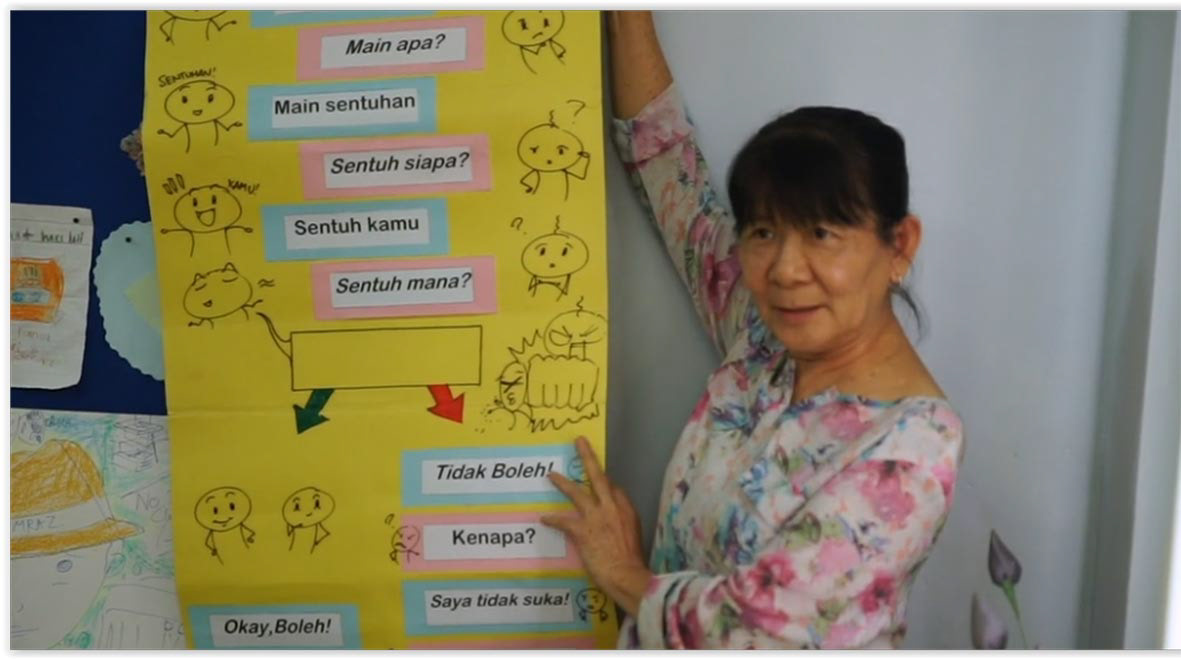 Main apa?
SENTUHAN!
Main sentuhan
Sentuh siapa?
KAMU!
Sentuh kamu
Sentuh mana?
Tidak Boleh!
Kenapa?
Saya tidak suka!
Okay,Boleh!
MRAZ
NO